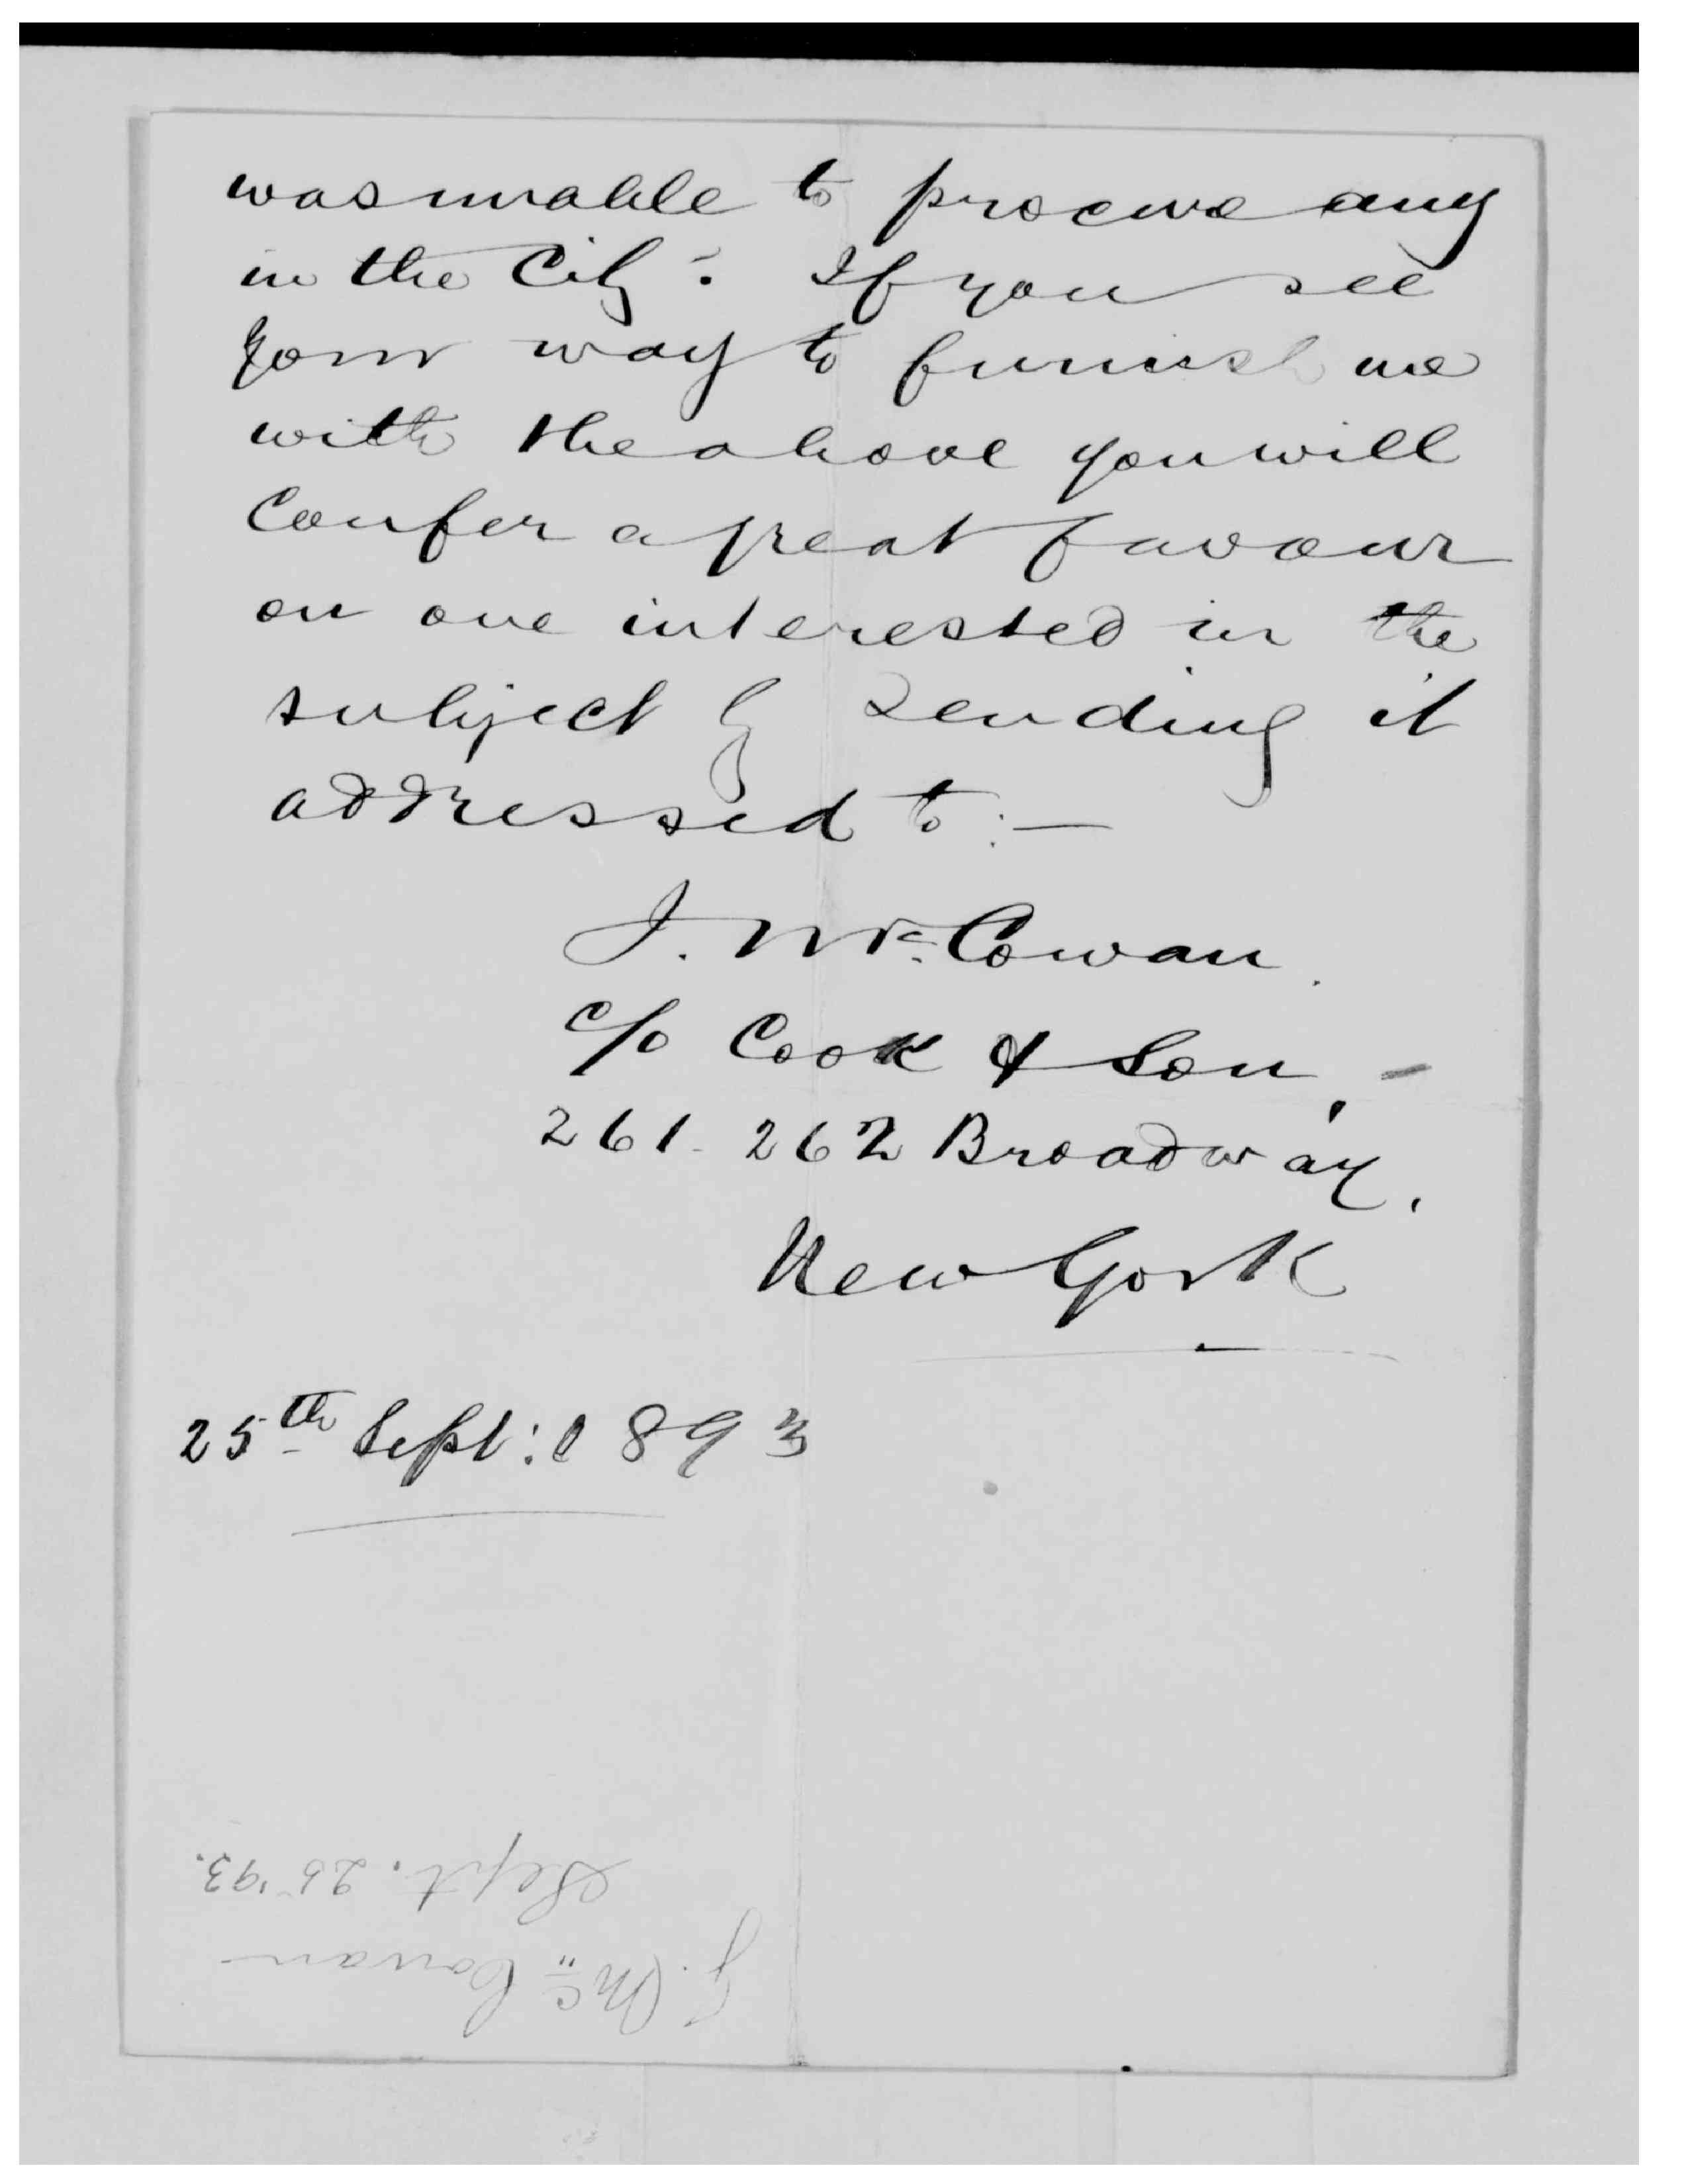 was unable to procure any
in the City. If you see
your way to furnish me
with the above you will
confer a great favour
on one interested in the
subject by sending it
addressed to:—
J. McCowan.
c/o Cook & Son,-
261-262 Broadway,
New York
25th Sept: 1893
J. McCowan
Sept. 25 '93.